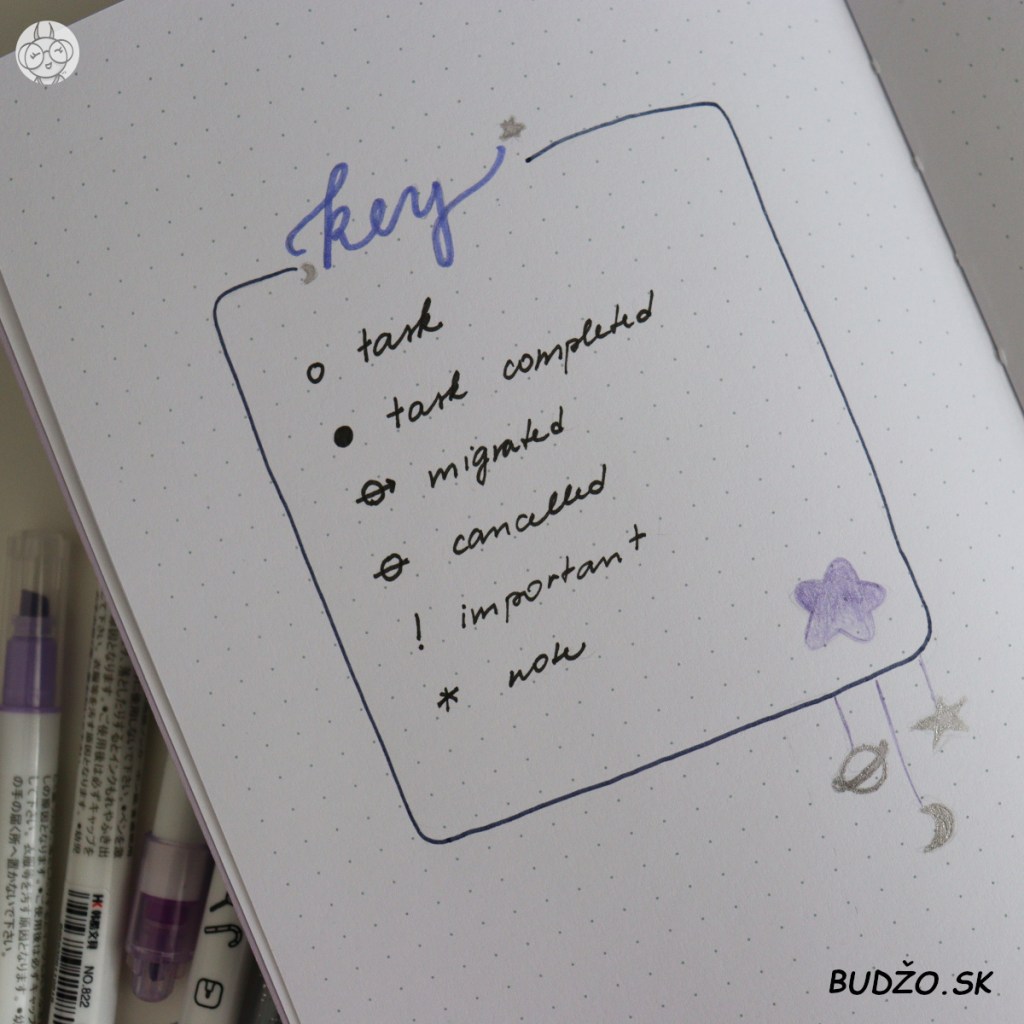 key
o task
● task completed
migrated
cancelled
! important
* note
NO.822
BUDŽO.SK